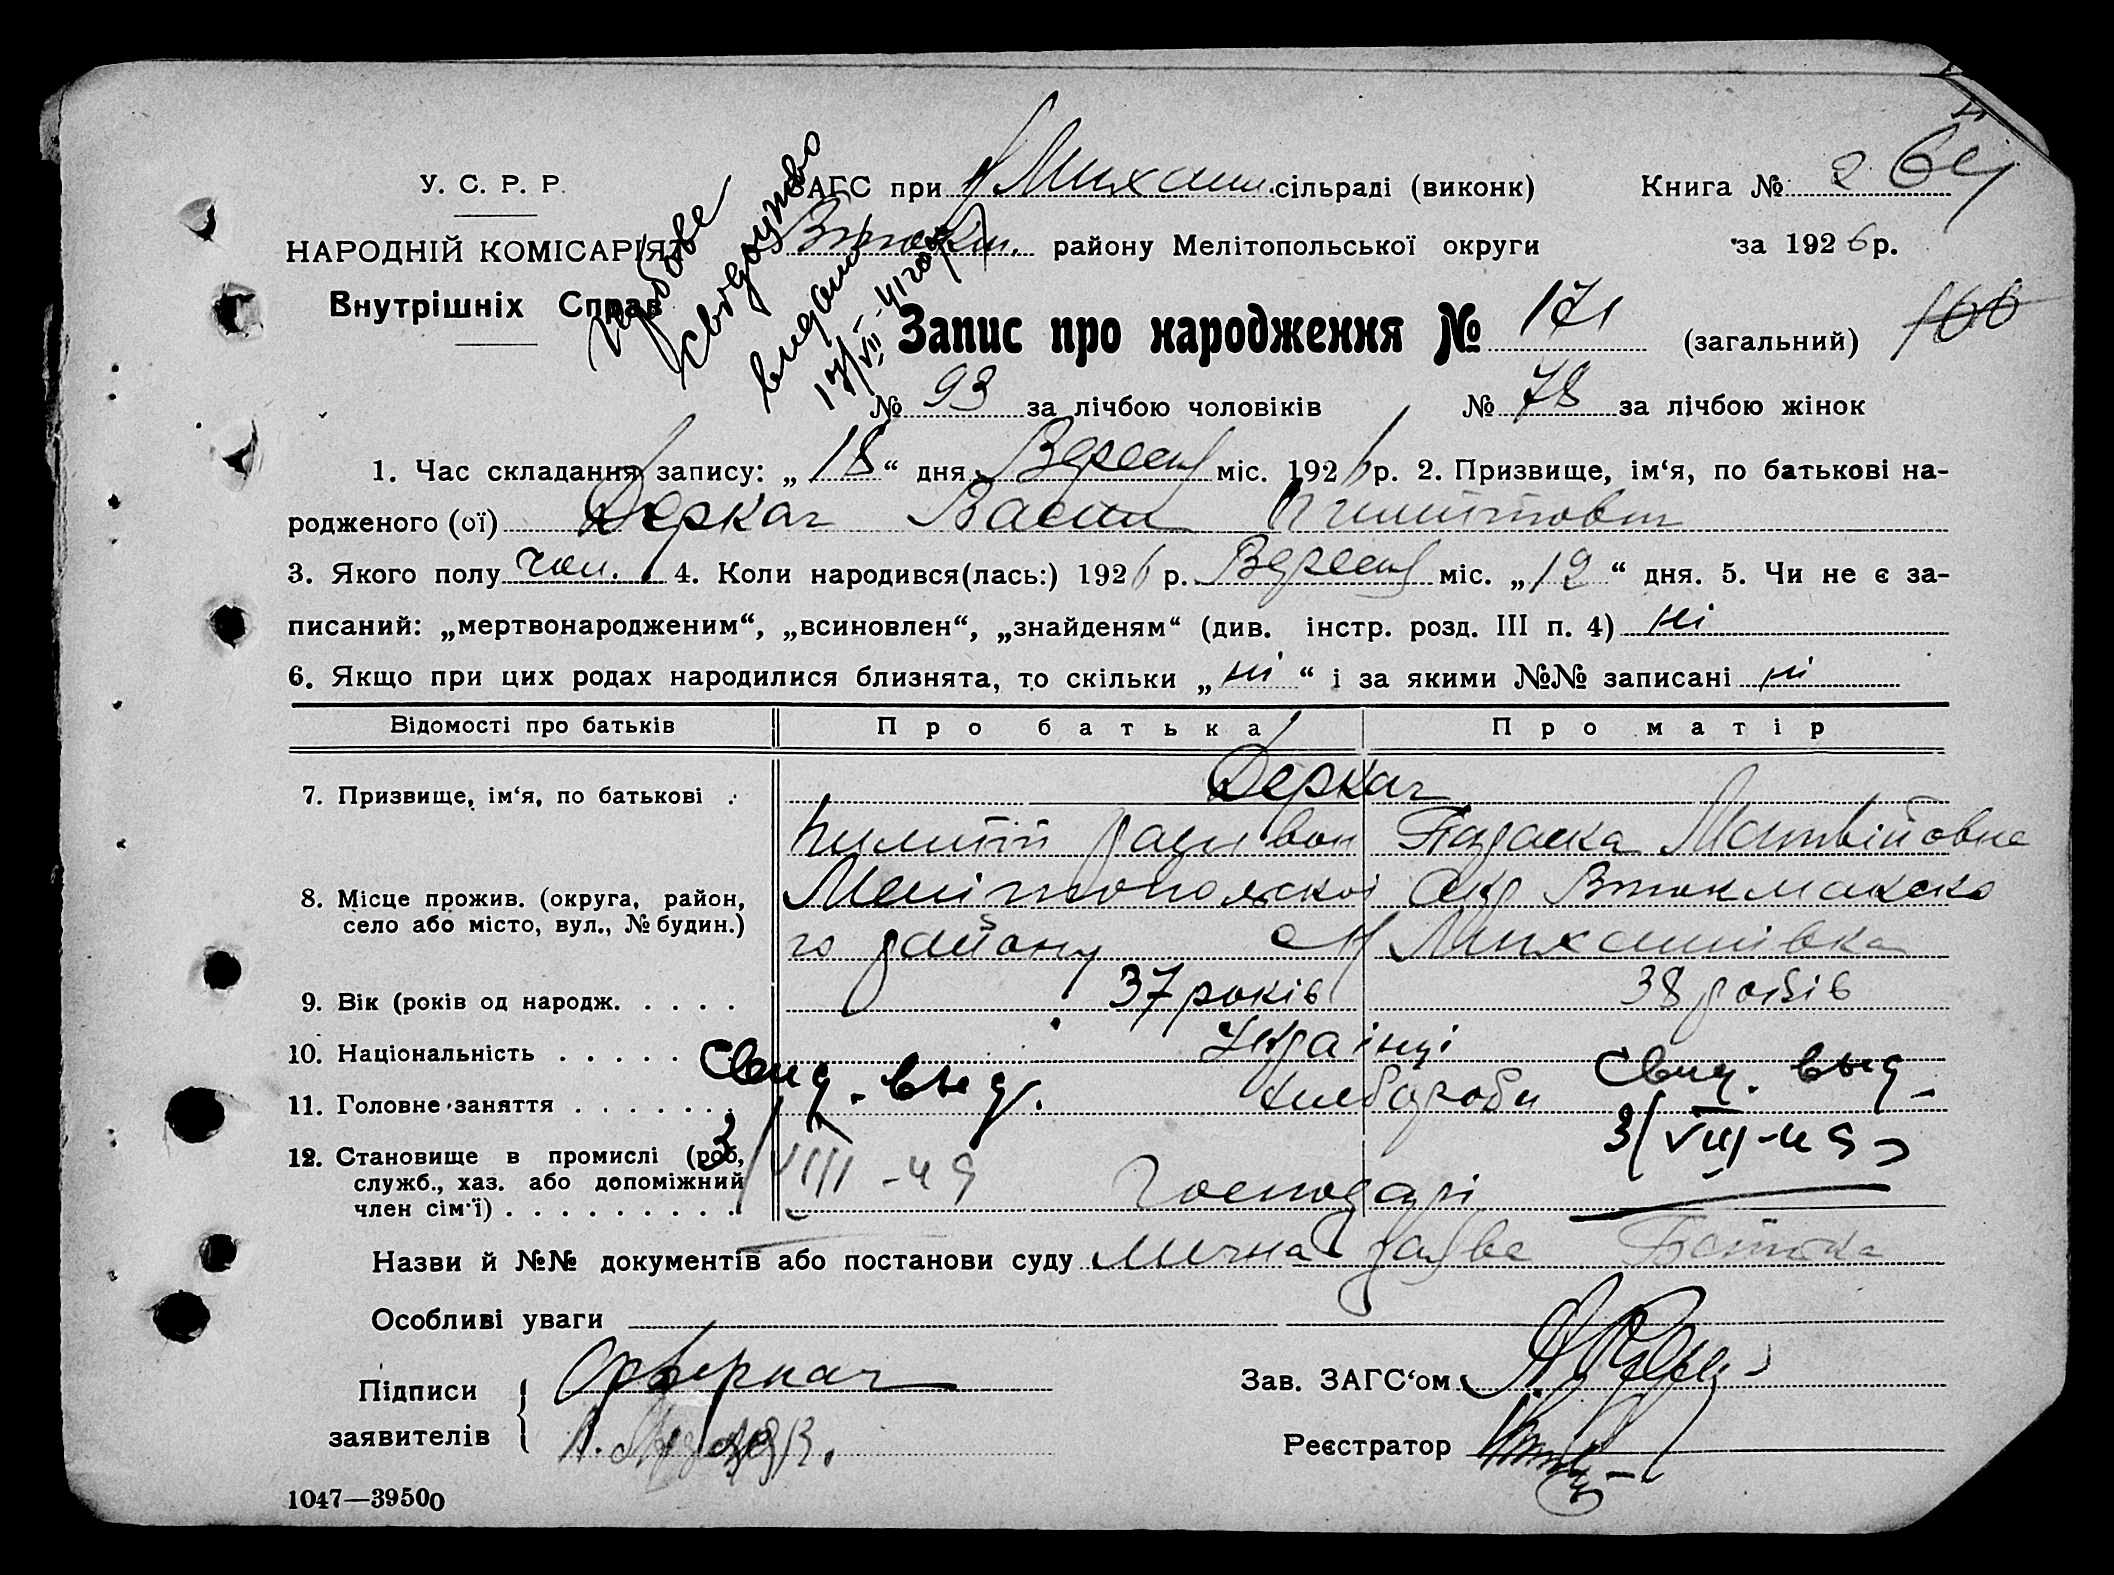 У. С. Р. Р.
ЗАГС при Михайл. сільраді (виконк)
Книга № 2
НАРОДНІЙ КОМІСАРІЯТ
Внутрішніх Справ
району Мелітопольської округи
за 1926 р.
видано
Запис про народження № 171 (загальний) 166
№ 93 за лічбою чоловіків № 78 за лічбою жінок
1. Час складання запису: „ 18 “ дня Вересня міс. 1926 р. 2. Призвище, ім‘я, по батькові на-
родженого (ої) Деркач Васил
3. Якого полу чол. 4. Коли народився(лась:) 1926 р. Вересня міс. „ 12 “ дня. 5. Чи не є за-
писаний: „мертвонародженим“, „всиновлен“, „знайденям“ (див. інстр. розд. III п. 4) ні
6. Якщо при цих родах народилися близнята, то скільки „ ні “ і за якими №№ записані ні
Відомості про батьків Про батька Про матір
7. Призвище, ім‘я, по батькові Деркач
Матвійовна
8. Місце прожив. (округа, район,
село або місто, вул., № будин.)
Мелітопольскоі окр Втокмакско
го району с Михайлівка
9. Вік (років од народж. . . . . 37 років 38 років
10. Національність . . . . . Украінці
Свид. выд. Свид. выд
11. Головне заняття . . . . . . . Хлебороби
3/VIII-49 3/VIII-49
12. Становище в промислі (роб,
служб., хаз. або допоміжний
член сім‘ї) . . . . . . . . . Господарі
Назви й №№ документів або постанови суду Лична заява Батька
Особливі уваги
Підписи
заявителів
Деркач
Зав. ЗАГС‘ом
Реєстратор
1047—39500